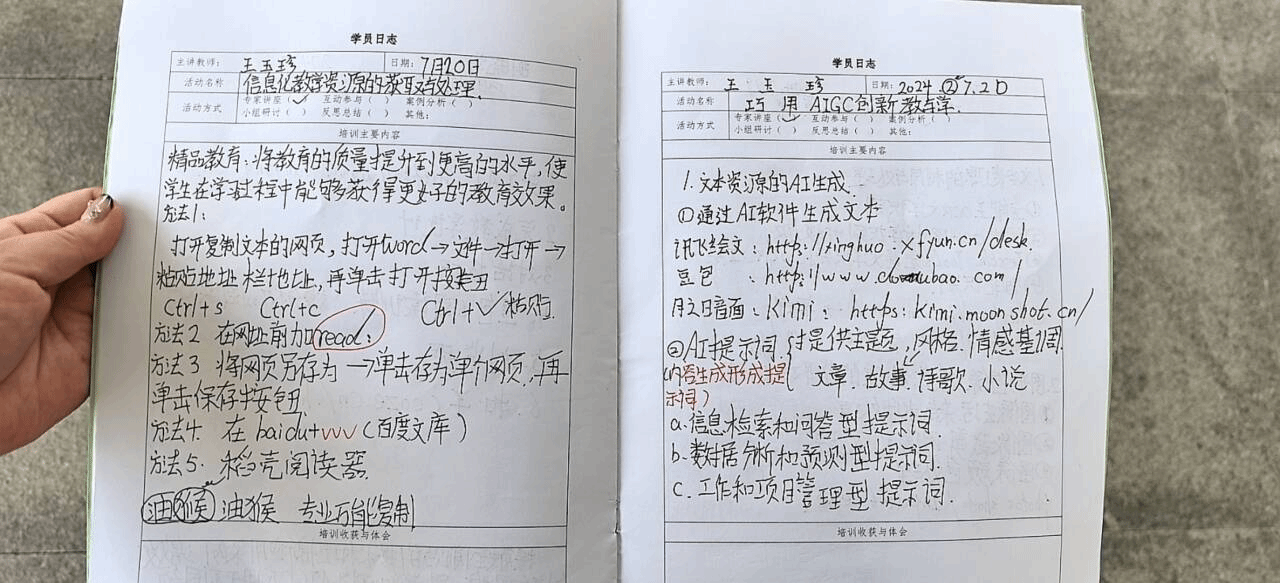 学员日志
主讲教师: 王玉珍 日期: 7月20日
活动名称 信息化教学资源的获取与处理
活动方式 专家讲座(✓) 互动参与( ) 案例分析( )
小组研讨( ) 反思总结( ) 其他:
培训主要内容
精品教育:将教育的质量提升到更高的水平,使
学生在学习过程中能够获得更好的教育效果。
方法1:
打开复制文本的网页,打开word→文件→打开→
粘贴地址栏地址,再单击打开按钮
Ctrl+s Ctrl+c Ctrl+V粘贴
方法2 在网址前加read:
方法3 将网页另存为→单击存为单个网页,再
单击保存按钮
方法4. 在baidu+vvv(百度文库)
方法5. 稻壳阅读器
油猴 油猴 专业万能复制
培训收获与体会
学员日志
主讲教师: 王玉珍 日期: 2024 7.20
活动名称 巧用AIGC创新教与学
活动方式 专家讲座(✓) 互动参与( ) 案例分析( )
小组研讨( ) 反思总结( ) 其他:
培训主要内容
1.文本资源的AI生成
①通过AI软件生成文本
讯飞绘文:https://xinghuo.xfyun.cn/desk
豆包:https://www.doubao.com/
月之暗面:Kimi:https:kimi.moonshot.cn/
②AI提示词 提供主题,风格.情感基调
(内容生成形成提 文章.故事.诗歌.小说
示词)
a.信息检索和问答型提示词.
b.数据分析和预测型提示词.
c.工作和项目管理型提示词.
培训收获与体会